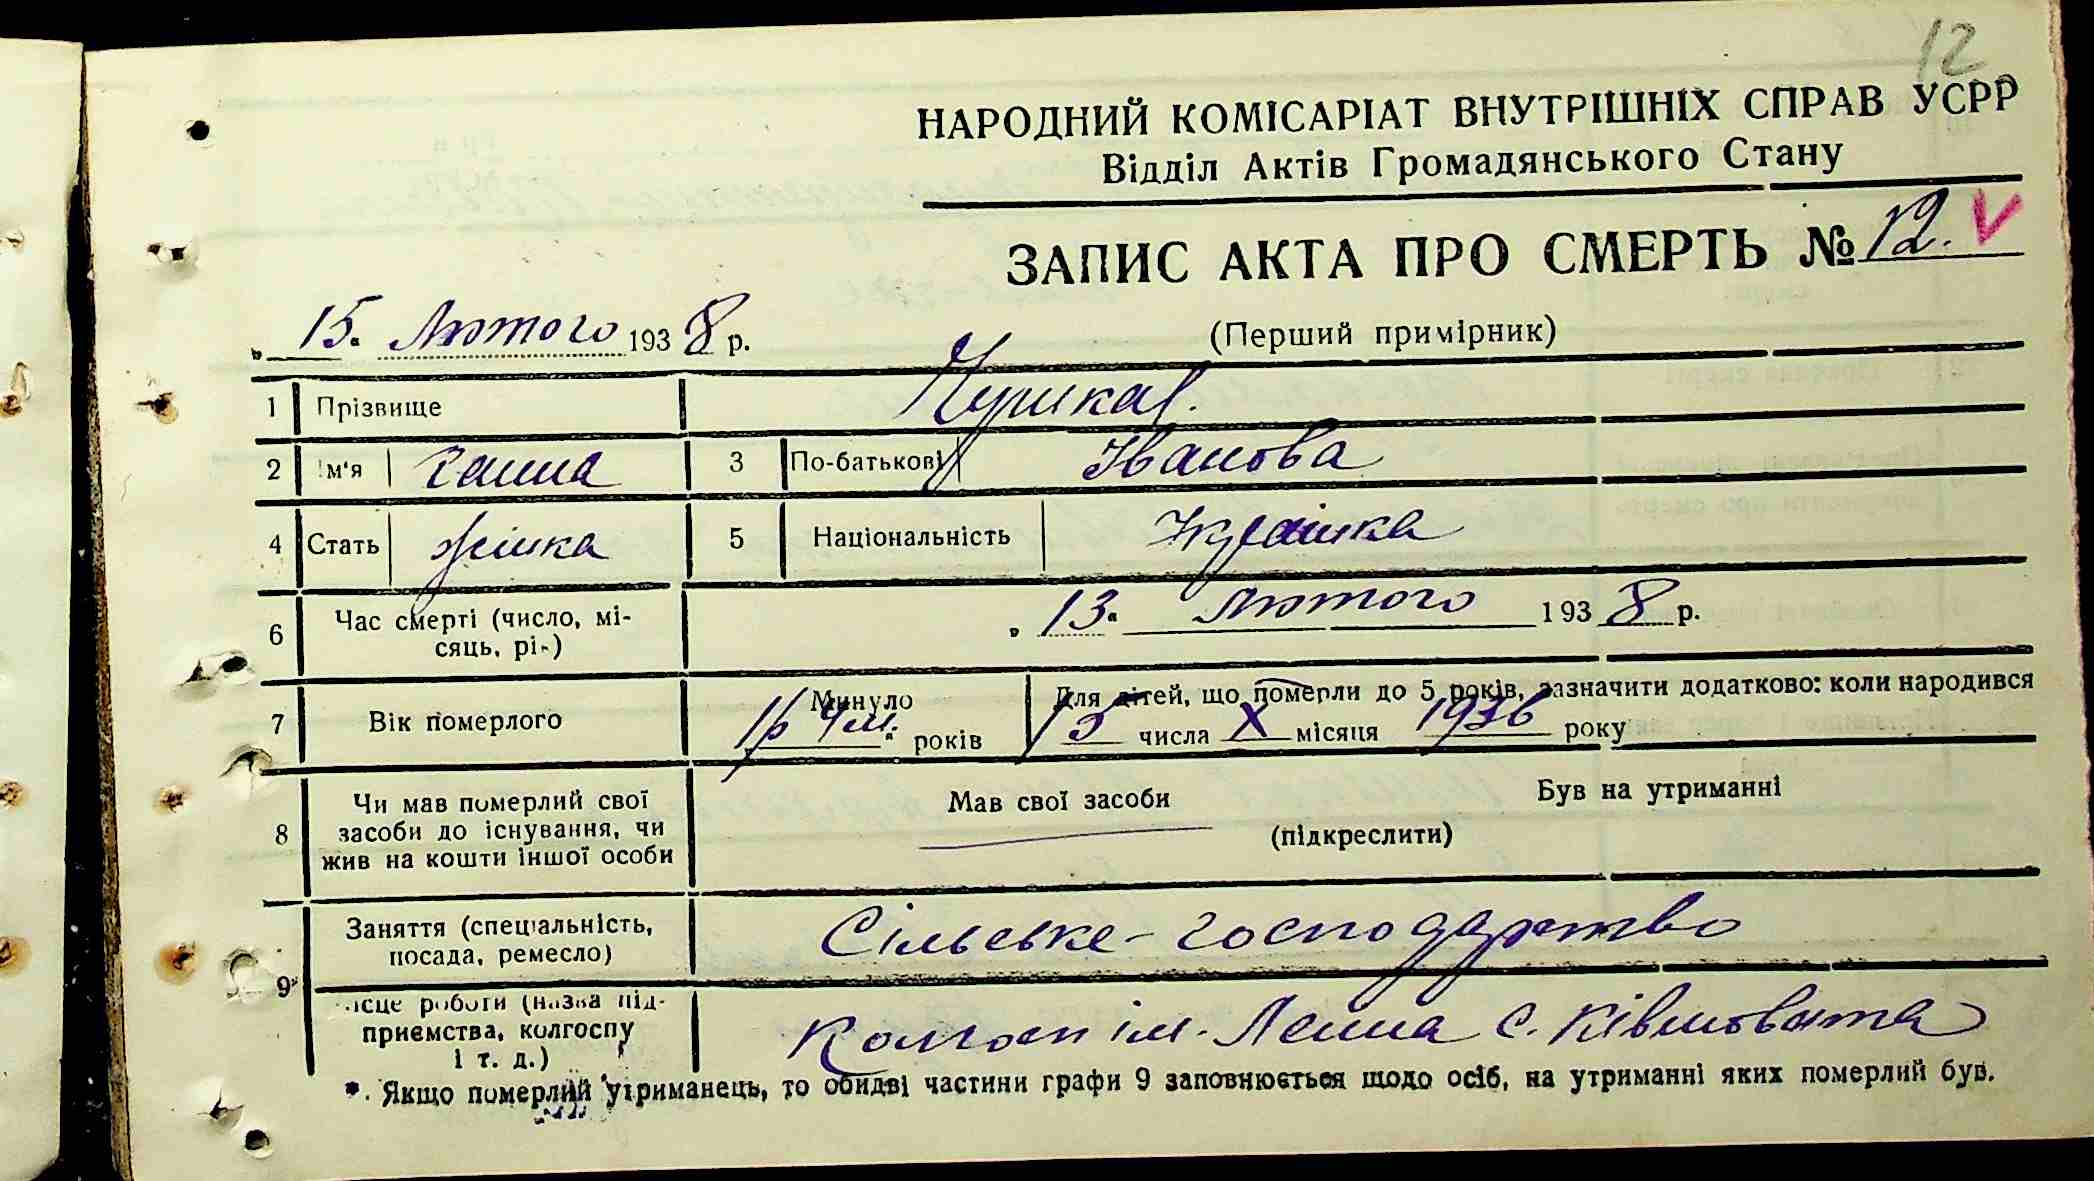 12
НАРОДНИЙ КОМІСАРІАТ ВНУТРІШНІХ СПРАВ УСРР
Відділ Актів Громадянського Стану
ЗАПИС АКТА ПРО СМЕРТЬ № 12.
„ 15 " Лютого 1938 р.
(Перший примірник)
1 Прізвище Пушкар.
2 Ім'я Ганна 3 По-батькові Іванова
4 Стать жінка 5 Національність Українка
6 Час смерті (число, мі-
сяць, рік) „ 13 " лютого 1938 р.
7 Вік померлого Минуло 1р 4м. років Для дітей, що померли до 5 років, зазначити додатково: коли народився
15 числа X місяця 1936 року
8 Чи мав померлий свої
засоби до існування, чи
жив на кошти іншої особи
Мав свої засоби Був на утриманні
(підкреслити)
9* Заняття (спеціальність,
посада, ремесло) Сільське-господарство
місце роботи (назва під-
приємства, колгоспу
і т. д.) Колгосп ім. Леніна с. Ківшовата
*. Якщо померлий утриманець, то обидві частини графи 9 заповнюється щодо осіб, на утриманні яких померлий був.